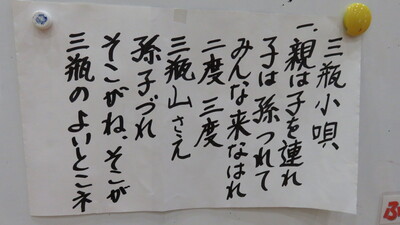 三瓶小唄
一、親は子を連れ
子は孫つれて
みんな来なはれ
二度三度
三瓶山さえ
孫子づれ
そこがね、そこが
三瓶のよいとこネ
ふ